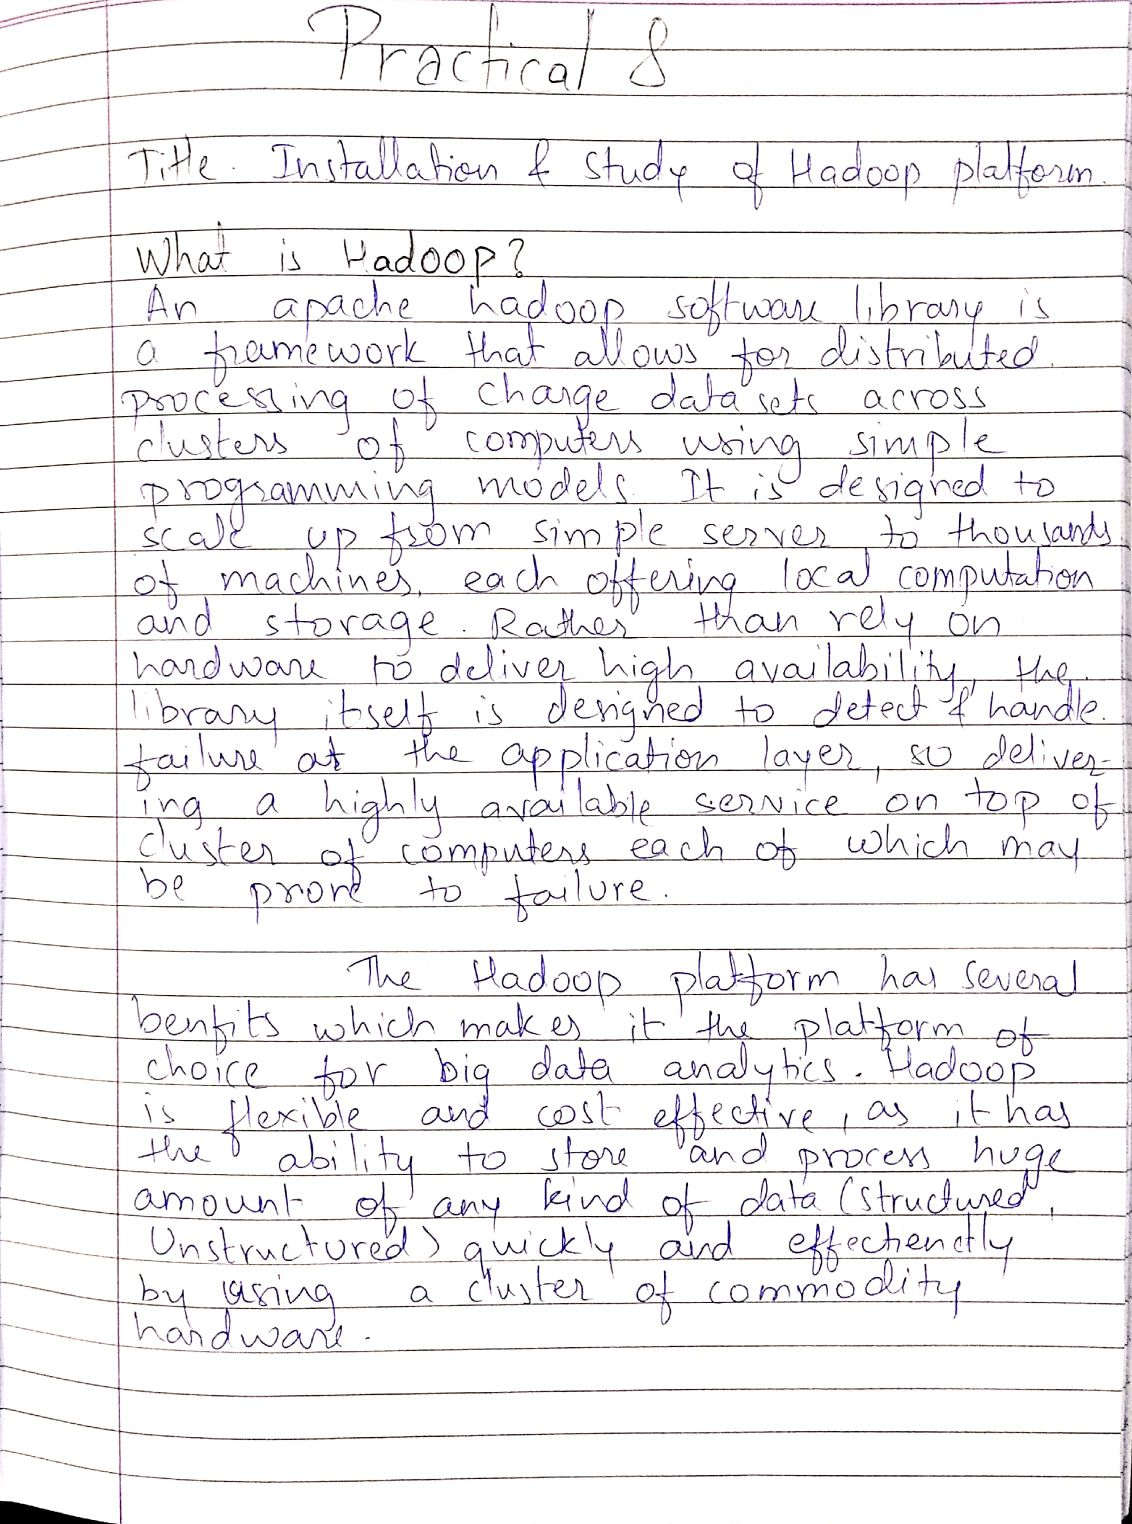 Practical 8
Title. Installation & Study of Hadoop platform.
What is Hadoop?
An apache hadoop software library is
a framework that allows for distributed
processing of charge data sets across
clusters of computers using simple
programming models. It is designed to
scale up from simple server to thousands
of machines, each offering local computation
and storage. Rather than rely on
hardware to deliver high availability, the
library itself is designed to detect & handle
failure at the application layer, so deliver-
ing a highly available service on top of
cluster of computers each of which may
be prone to failure.
The Hadoop platform has several
benfits which makes it the platform of
choice for big data analytics. Hadoop
is flexible and cost effective, as it has
the ability to store and process huge
amount of any kind of data (structured,
Unstructured) quickly and effectienctly
by using a cluster of commodity
hardware.